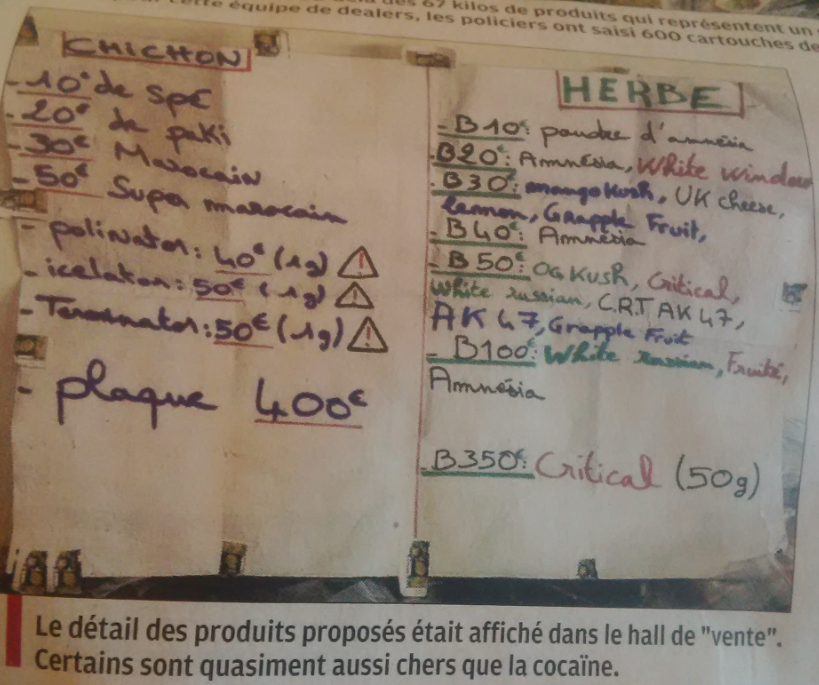 des 67 kilos de produits qui représentent un
cette équipe de dealers, les policiers ont saisi 600 cartouches de
CHICHON
- 10€ de Spé
- 20€ de paki
- 30€ Marocain
- 50€ Super marocain
- polinator: 40€ (1g)
- icelator: 50€ (1g)
- Terminator: 50€ (1g)
- plaque 400€
HERBE
- B10€: poudre d'amnésia
- B20€: Amnésia, White window
- B30€: mango Kush, UK cheese,
lemon, Grapple Fruit,
- B40€: Amnésia
- B50€: OG Kush, Critical,
White russian, C.R.T AK 47,
AK 47, Grapple Fruit
- B100€: White russian, Fruité,
Amnésia
- B350€: Critical (50g)
Le détail des produits proposés était affiché dans le hall de "vente".
Certains sont quasiment aussi chers que la cocaïne.